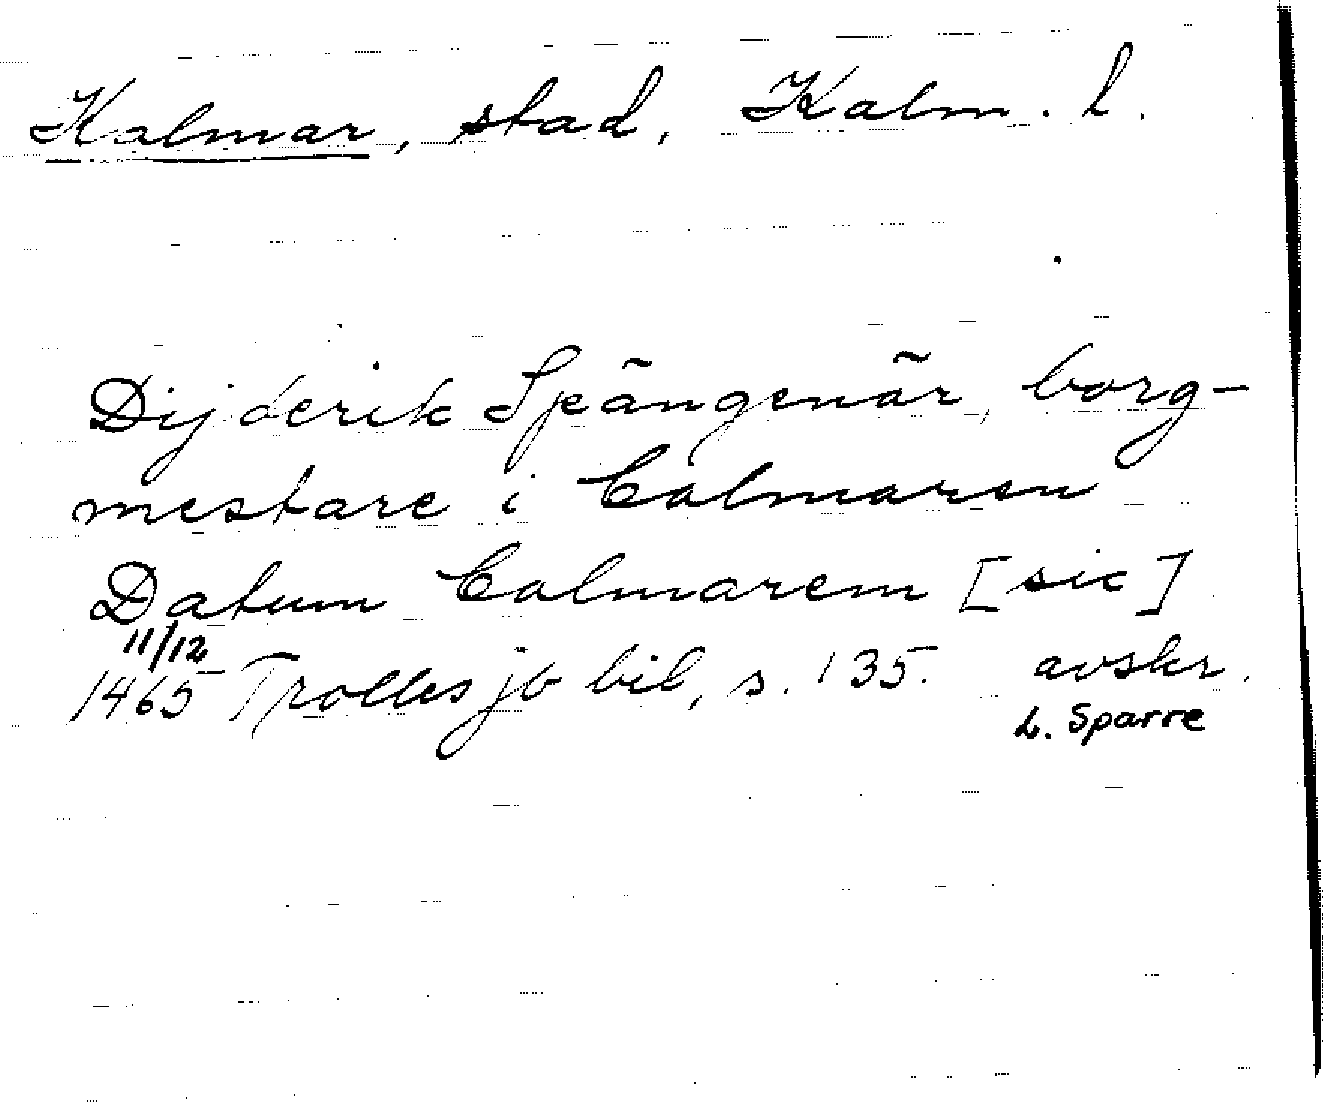 Kalmar, stad, Kalm. l.
Dijderik Spängenär, borg-
mestare i Calmaren
Datum Calmarem [sic]
11/12
1465 Trolles jb bil, s. 135. avskr.
L. Sparre